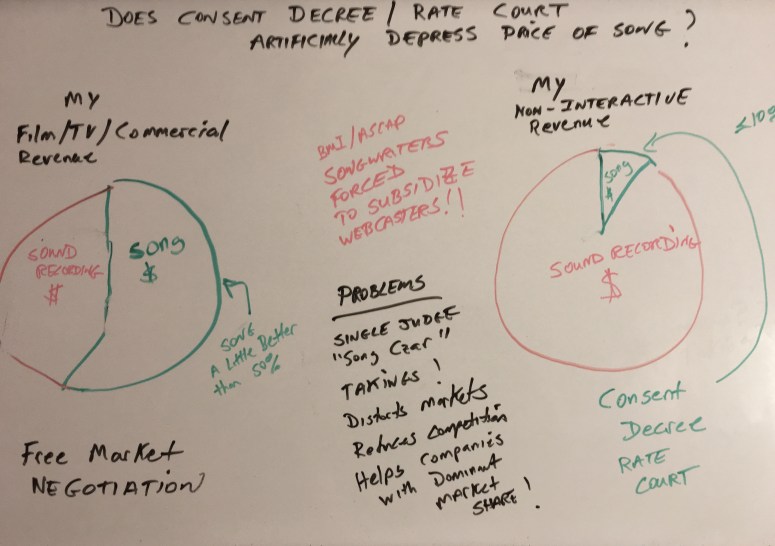 DOES CONSENT DECREE / RATE COURT
ARTIFICIALLY DEPRESS PRICE OF SONG?
MY
Film/TV/Commercial
Revenue
SOUND
RECORDING
$
Song
$
SONG
A little Better
than 50%
Free Market
NEGOTIATION
BMI/ASCAP
SONGWRITERS
FORCED
TO SUBSIDIZE
WEBCASTERS!!
PROBLEMS
SINGLE JUDGE
"Song Czar"
TAKINGS!
Distorts markets
Reduces competition
Helps companies
with Dominant
market
SHARE!
MY
NON-INTERACTIVE
Revenue
Song
$
SOUND RECORDING
$
Consent
Decree
RATE
COURT